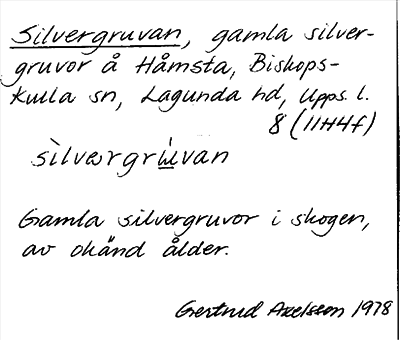 Silvergruvan, gamla silver-
gruvor å Håmsta, Biskops-
kulla sn, Lagunda hd, Upps. l.
8 (11H4f)
sìlvərgrú̱van
Gamla silvergruvor i skogen,
av okänd ålder.
Gertrud Axelsson 1978